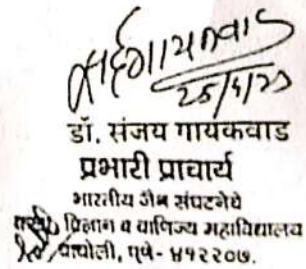 25/5/23
डॉ. संजय गायकवाड
प्रभारी प्राचार्य
भारतीय जैन संघटनेचे
विज्ञान व वाणिज्य महाविद्यालय
वाघोली, पुणे- ४१२२०७.